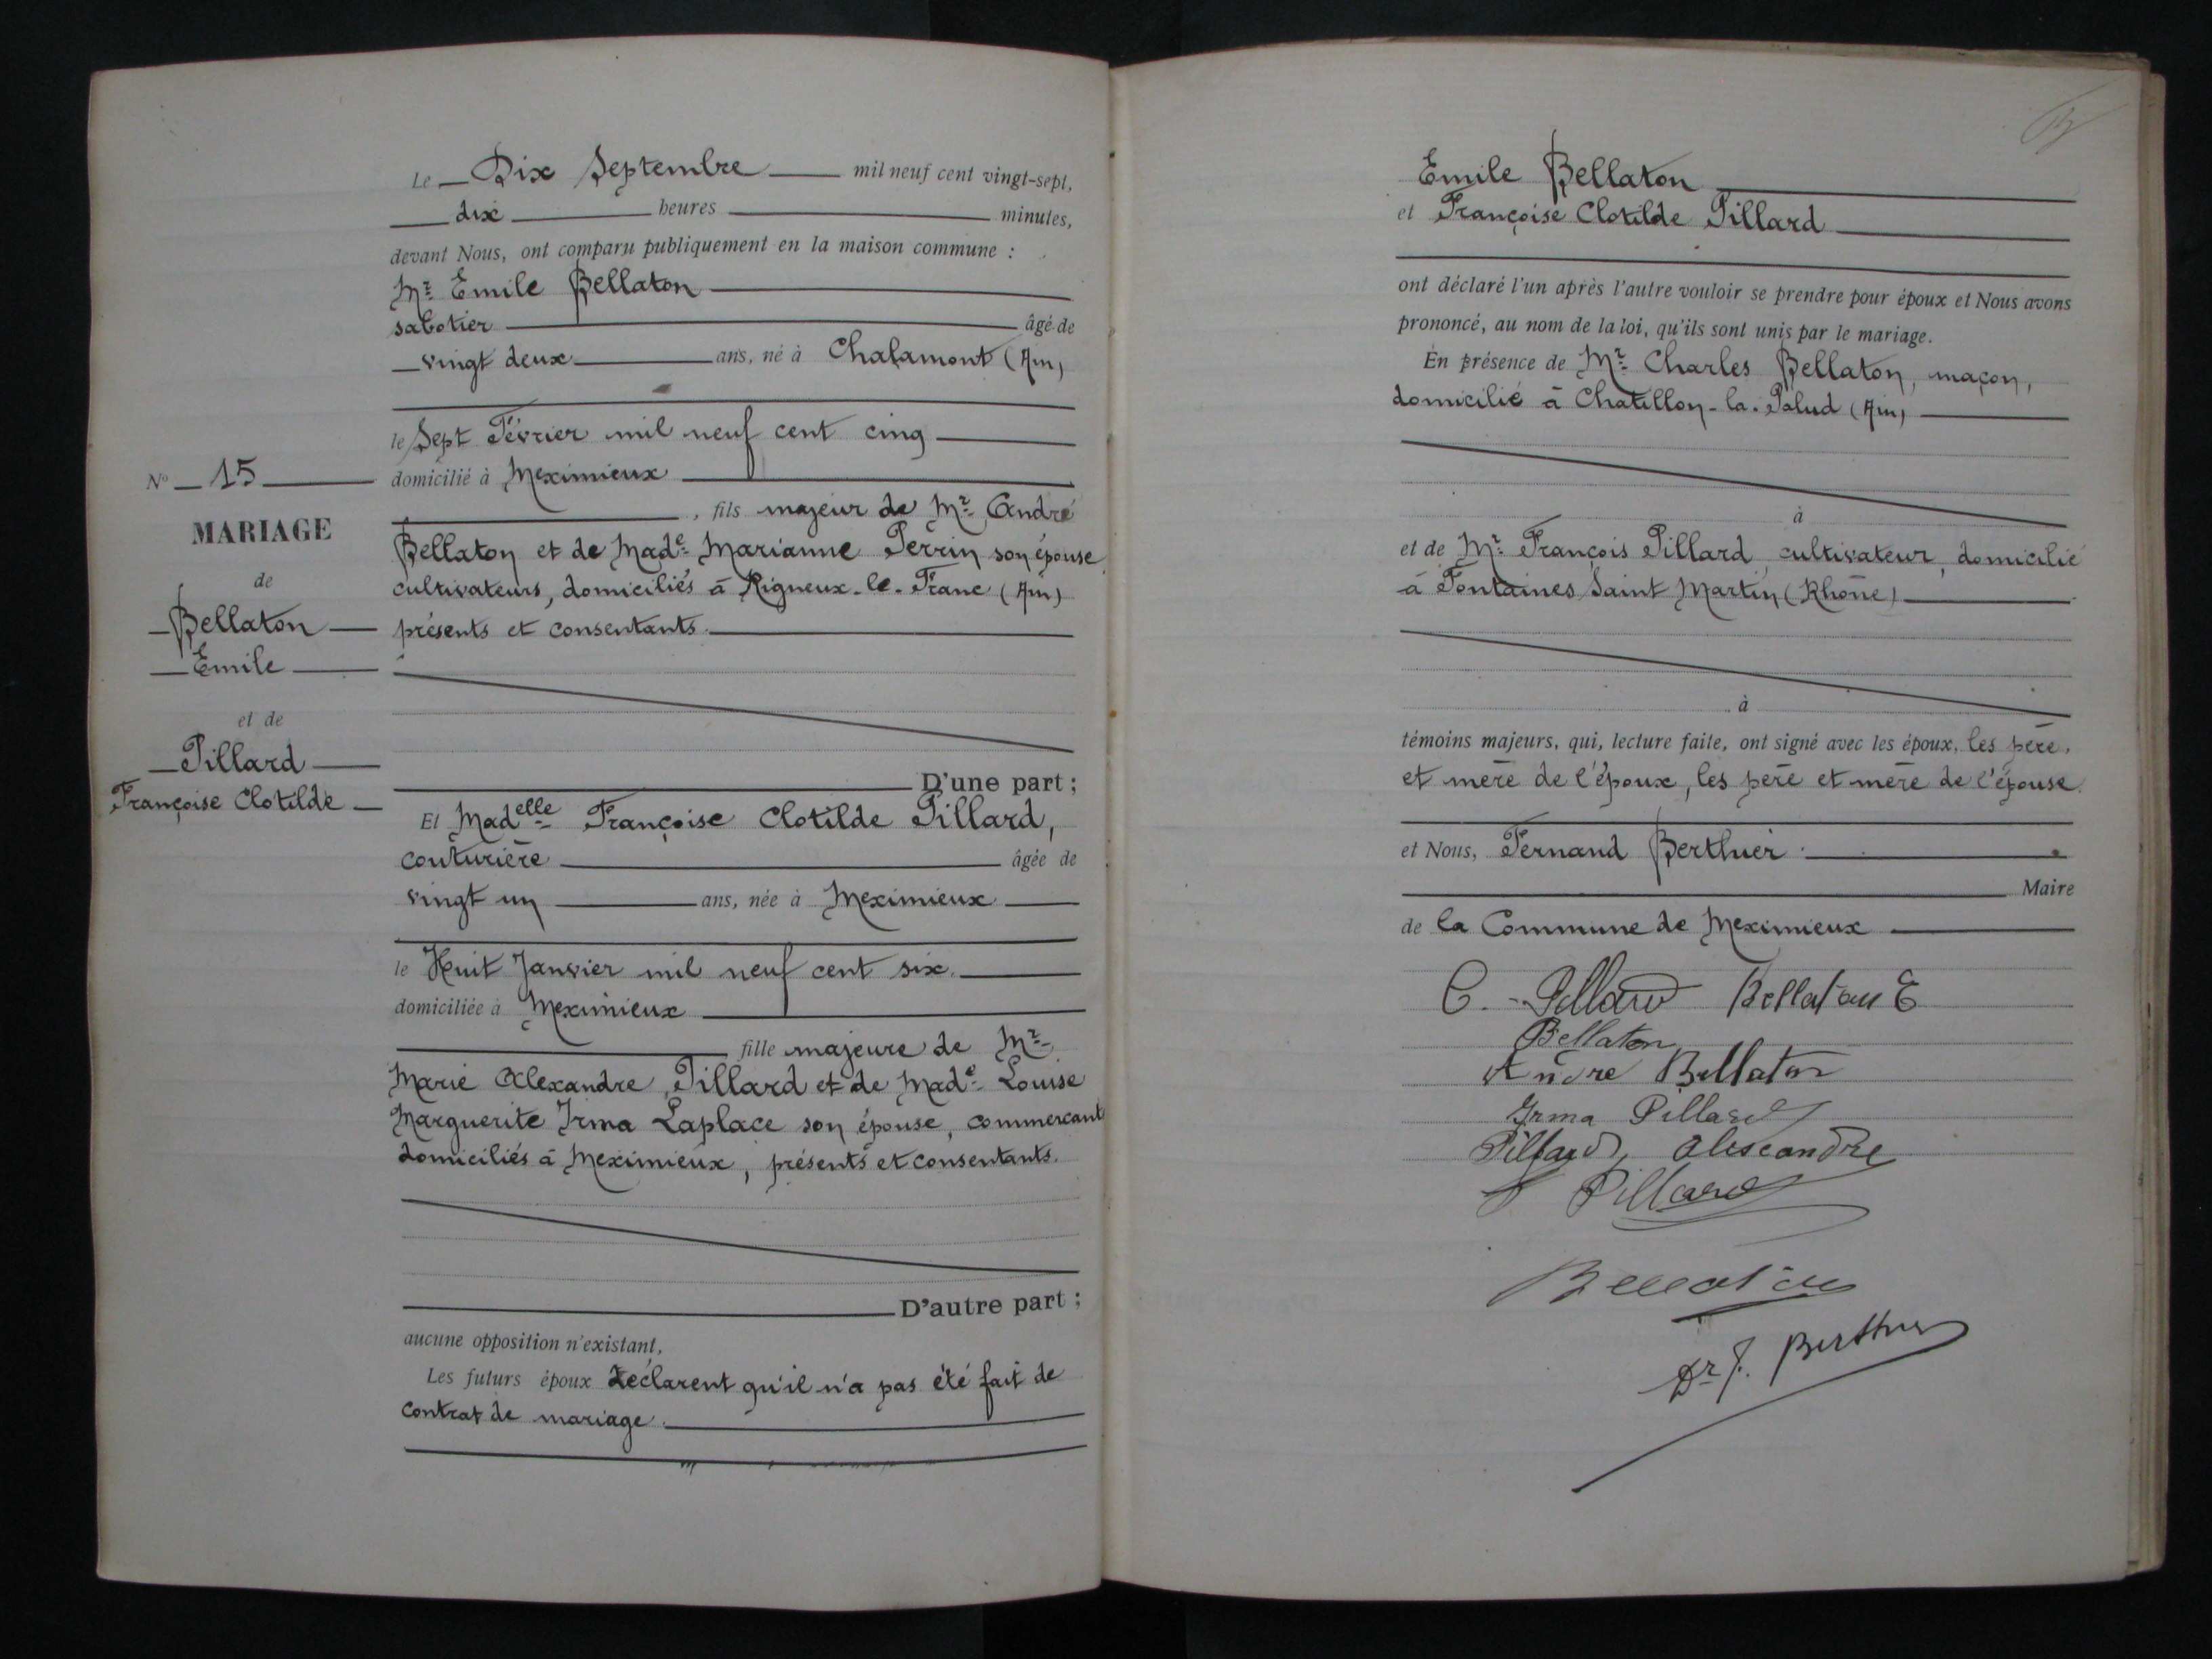 Le Dix Septembre mil neuf cent vingt-sept,
dix heures minutes,
devant Nous, ont comparu publiquement en la maison commune :
Mr Emile Bellaton
sabotier âgé de
vingt deux ans, né à Chalamont (Ain)
le Sept Février mil neuf cent cinq
domicilié à Meximieux
, fils majeur de Mr André
Bellaton et de Made Marianne Perrin son épouse
cultivateurs, domiciliés à Rigneux-le-Franc (Ain)
présents et consentants.
N° 15
MARIAGE
de
Bellaton
Emile
et de
Pillard
Françoise Clotilde
D'une part ;
Et Madelle Françoise Clotilde Pillard,
couturière âgée de
vingt un ans, née à Meximieux
le Huit Janvier mil neuf cent six.
domiciliée à Meximieux
fille majeure de Mr
Marie Alexandre Pillard et de Made Louise
Marguerite Irma Laplace son épouse, commerçants
domiciliés à Meximieux, présents et consentants.
D'autre part ;
aucune opposition n'existant,
Les futurs époux déclarent qu'il n'a pas été fait de
contrat de mariage.
Emile Bellaton
et Françoise Clotilde Pillard
ont déclaré l'un après l'autre vouloir se prendre pour époux et Nous avons
prononcé, au nom de la loi, qu'ils sont unis par le mariage.
En présence de Mr Charles Bellaton, maçon,
domicilié à Chatillon-la-Palud (Ain)
à
et de Mr François Pillard, cultivateur, domicilié
à Fontaines Saint Martin (Rhône)
à
témoins majeurs, qui, lecture faite, ont signé avec les époux, les père,
et mère de l'époux, les père et mère de l'épouse.
et Nous, Fernand Berthier
Maire
de la Commune de Meximieux
C. Pillard Bellaton E
Bellaton
André Bellaton
Irma Pillard
Pillard Alexandre
Pillard
Bellaton
Dr F. Berthier